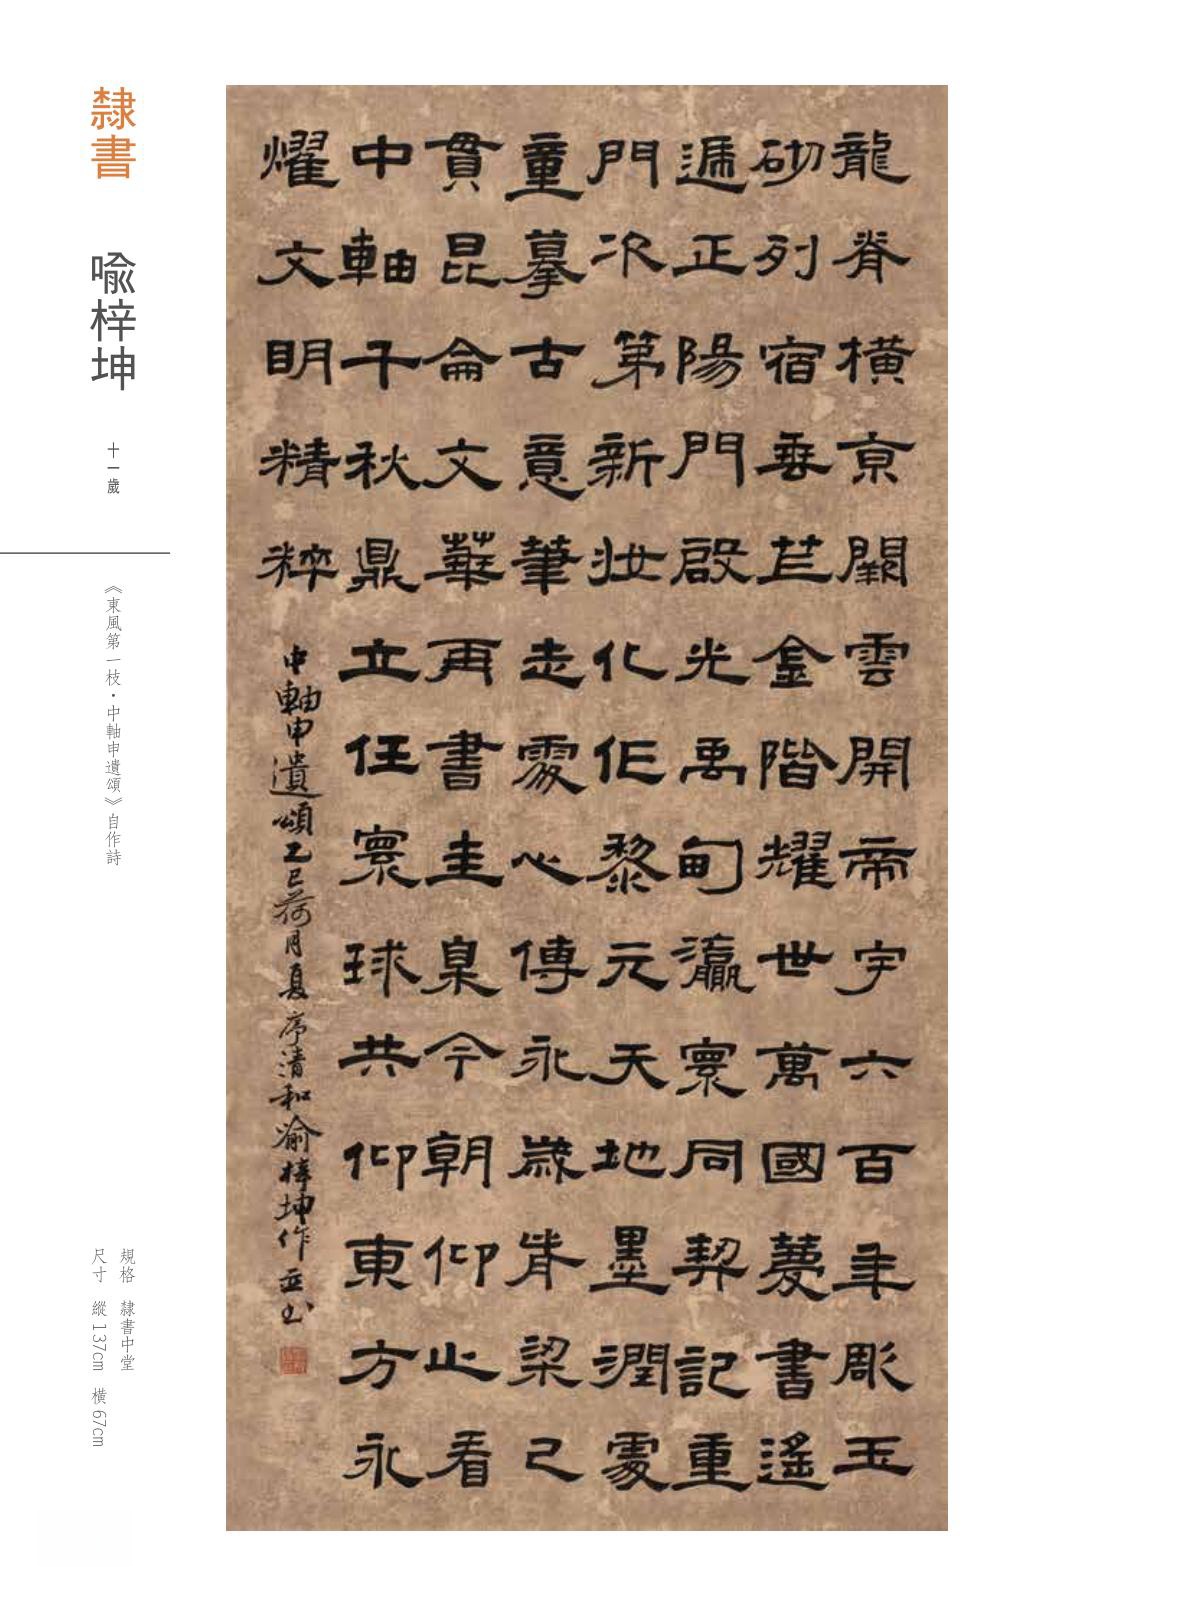 隸書
喻梓坤
十一歲
《東風第一枝·中軸申遺頌》自作詩
規格 隸書中堂
尺寸 縱137cm 橫67cm
龍脊橫京闕雲開帝宇六百年彫玉
砌列宿垂芒金階耀世萬國夢書遙
遞正陽門啟光禹甸瀛寰同契記重
門次第新妝化作黎元天地墨潤處
童摹古意筆走處心傳永歲脊梁已
貫昆侖文華再書圭臬今朝仰止看
中軸千秋鼎立任寰球共仰東方永
燿文明精粹
中軸申遺頌乙巳荷月夏序清和喻梓坤作並書